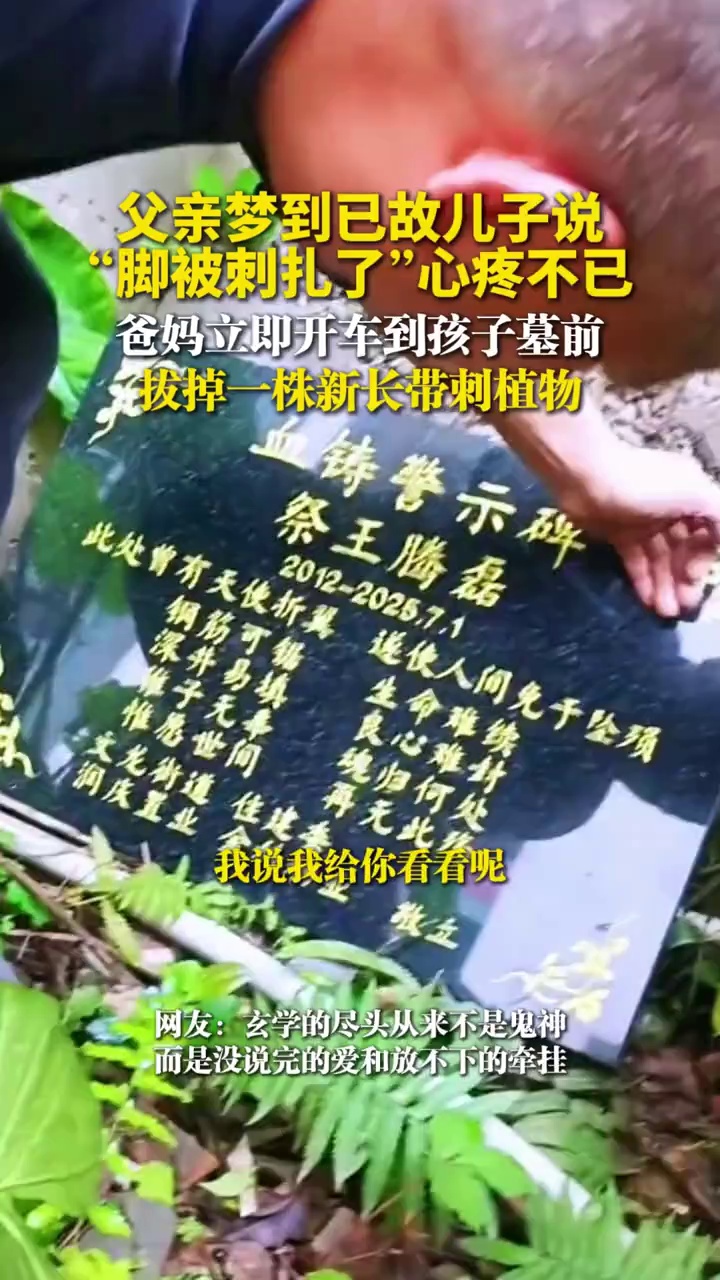 父亲梦到已故儿子说
“脚被刺扎了”心疼不已
爸妈立即开车到孩子墓前
拔掉一株新长带刺植物
血铸警示碑
祭王腾磊
2012-2025.7.1
此处曾有天使折翼 遂使人间免于坠殒
钢筋可锯 生命难续
深井易填 良心难封
稚子无辜 魂归何处
惟愿世间 再无此殇
文龙街道 住建委
润庆置业
敬立
我说我给你看看呢
网友：玄学的尽头从来不是鬼神
而是没说完的爱和放不下的牵挂